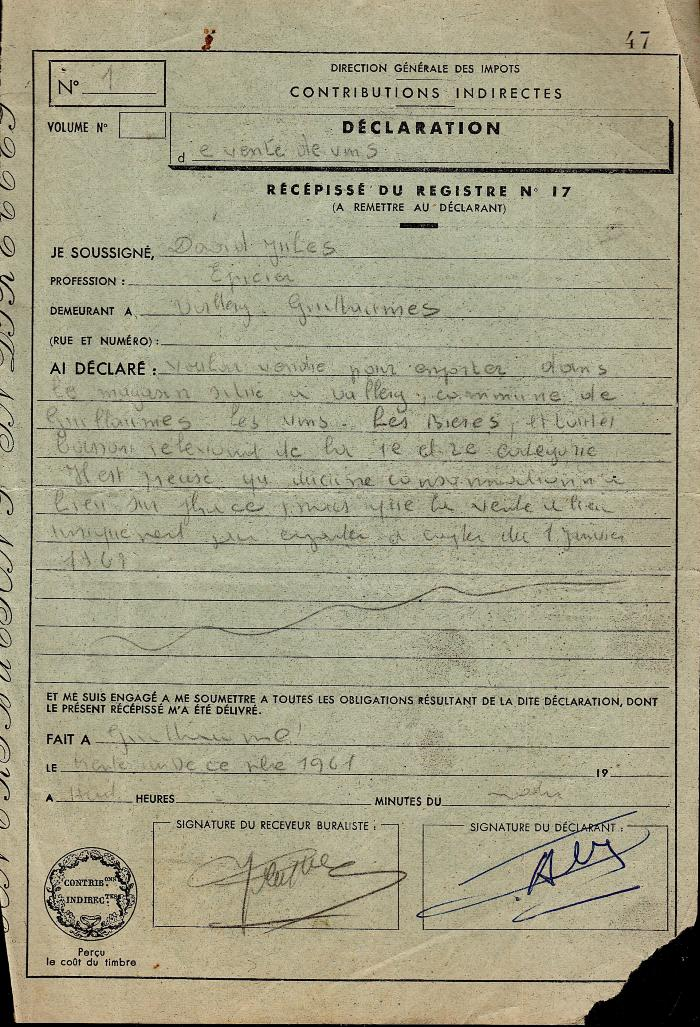 47
N° 1
DIRECTION GÉNÉRALE DES IMPOTS
CONTRIBUTIONS INDIRECTES
VOLUME N°
DÉCLARATION
d e vente de vins
RÉCÉPISSÉ DU REGISTRE N° 17
(A REMETTRE AU DÉCLARANT)
JE SOUSSIGNÉ, David Jules
PROFESSION : Epicier
DEMEURANT A Guillaumes
(RUE ET NUMÉRO) :
AI DÉCLARÉ : vouloir vendre pour emporter dans
le magasin situé à commune de
Guillaumes les vins. Les Bieres, et
relevant de la 1e et 2e categorie
Il est que aucune consommation n'a
lieu sur place mais que la vente a lieu
uniquement pour emporter à compter du 1 Janvier
196
ET ME SUIS ENGAGÉ A ME SOUMETTRE A TOUTES LES OBLIGATIONS RÉSULTANT DE LA DITE DÉCLARATION, DONT
LE PRÉSENT RÉCÉPISSÉ M'A ÉTÉ DÉLIVRÉ.
FAIT A Guillaumes
LE trente un Decembre 1961 19
A Huit HEURES MINUTES DU
SIGNATURE DU RECEVEUR BURALISTE :
SIGNATURE DU DÉCLARANT :
CONTRIB.ONS
INDIREC.TES
Perçu
le coût du timbre